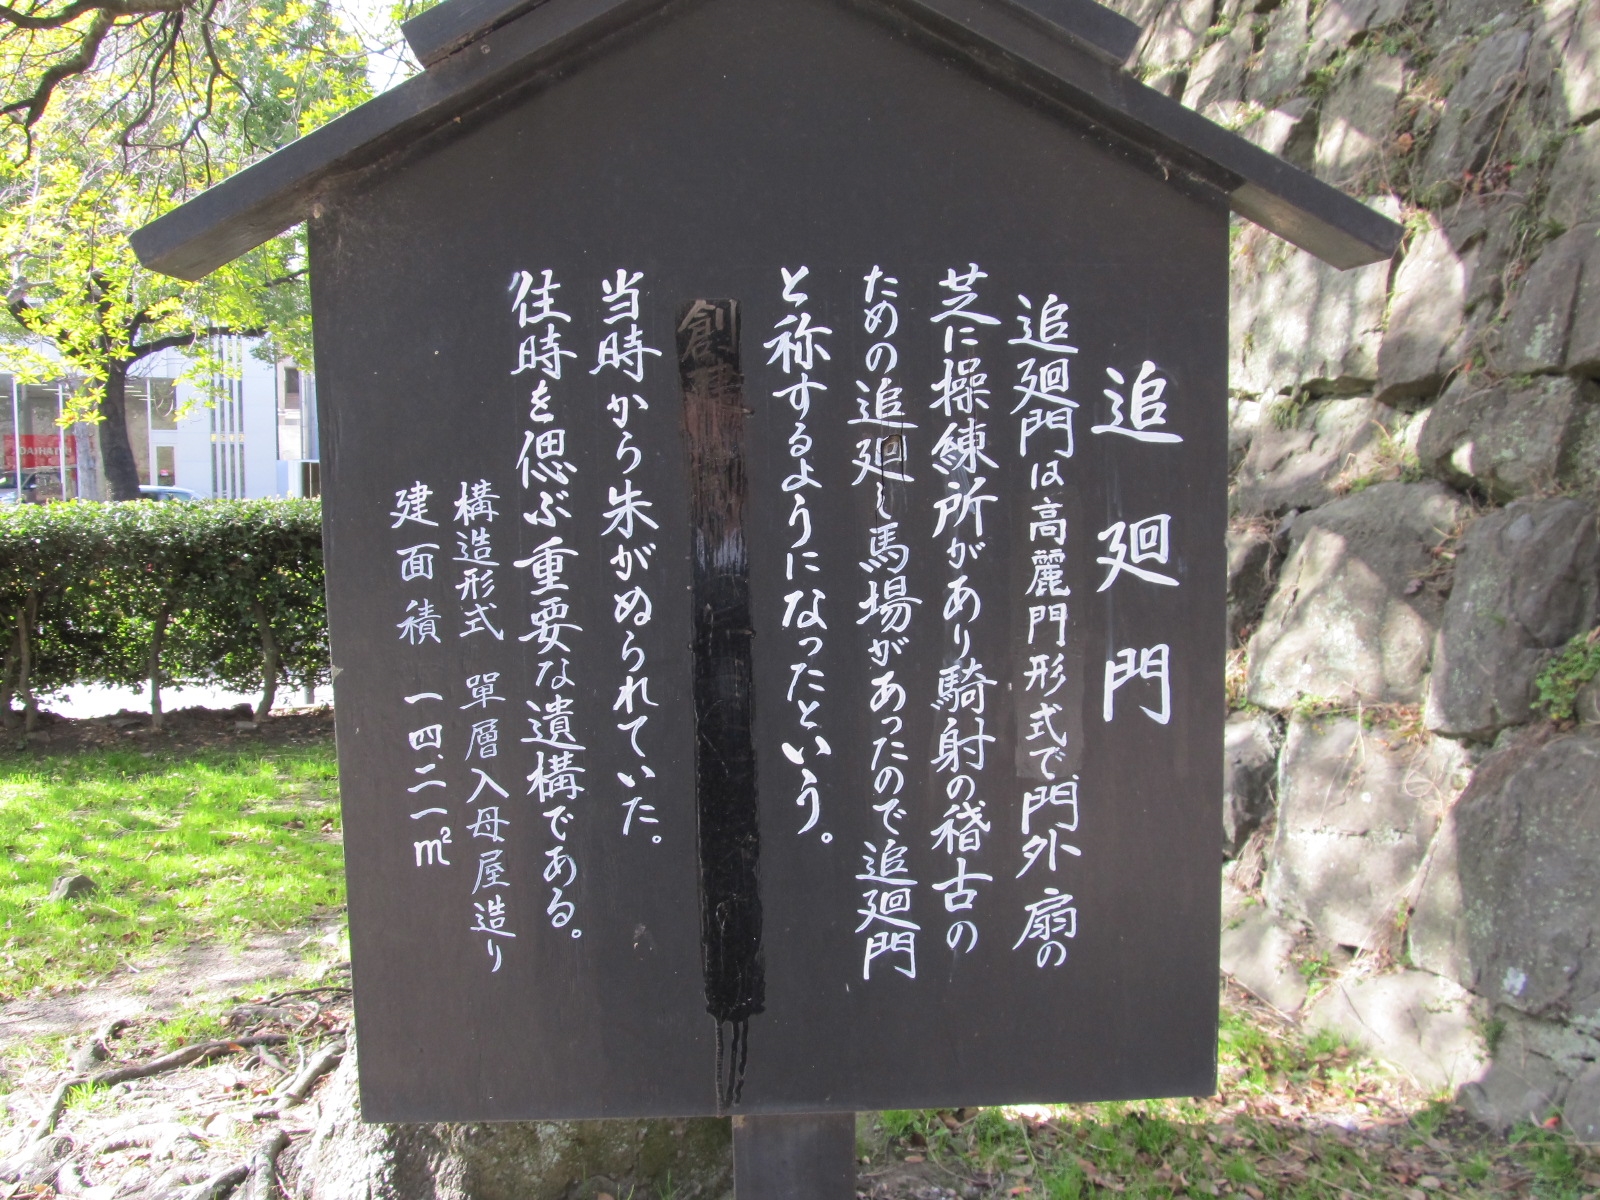 追廻門
追廻門は高麗門形式で門外扇の
芝に操練所があり騎射の稽古の
ための追廻し馬場があったので追廻門
と称するようになったという。
創建
当時から朱がぬられていた。
往時を偲ぶ重要な遺構である。
構造形式 單層入母屋造り
建面積 一四.二一㎡
DAIHATSU